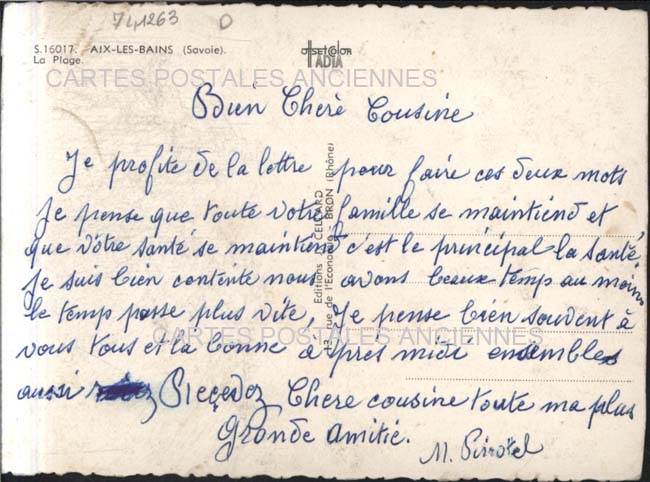 741263
S.16017. AIX-LES-BAINS (Savoie).
La Plage.
OFFSET COLOR
TADIA
CARTES POSTALES ANCIENNES
Bien Cherè Cousine
Je profite de la lettre pour faire ces deux mots
Je pense que toute votre famille se maintiend et
que vôtre santé se maintiend c'est le principal la santé,
Je suis bien contente nous avons beaux temp au moins
le temp passe plus vite, Je pense bien souvent à
vous tous et la bonne à près midi ensembles
aussi Reçedoz Chere cousine toute ma plus
Grande amitié.
M. Pirrotel
Editions J. CELLARD
13, rue de l'Economie - BRON (Rhône)
CARTES POSTALES ANCIENNES